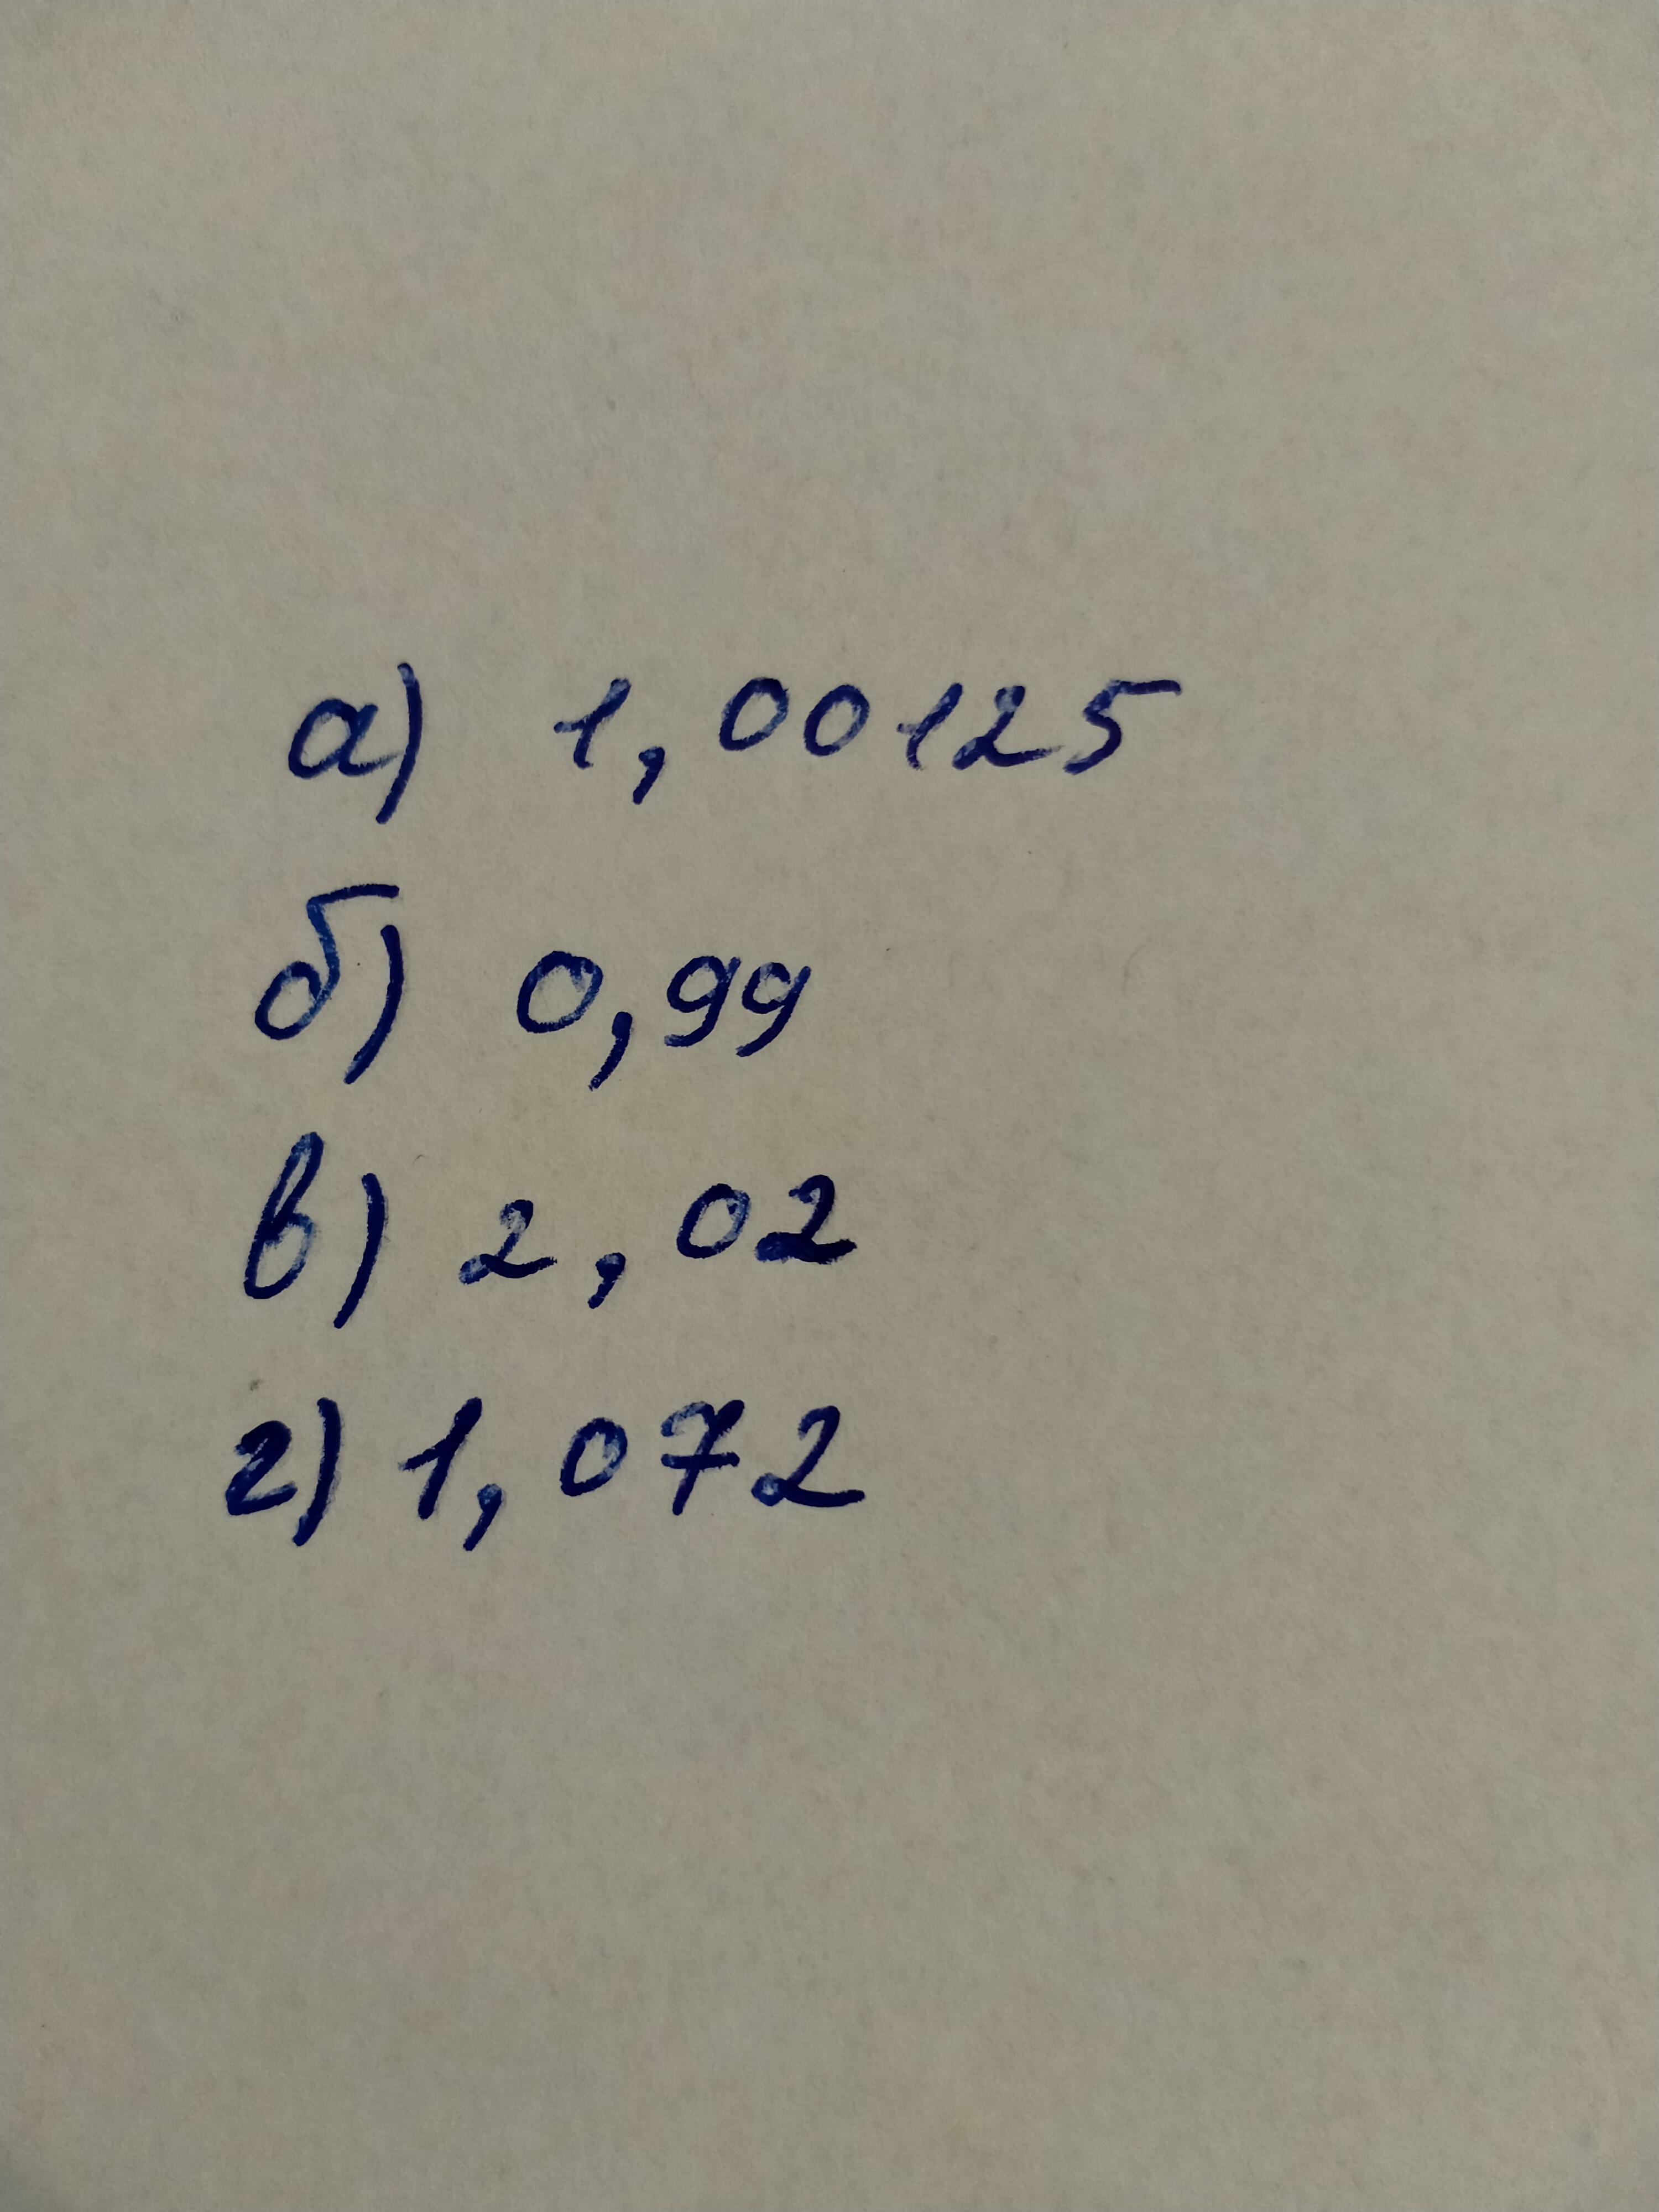 а) 1,00125
б) 0,99
в) 2,02
г) 1,072